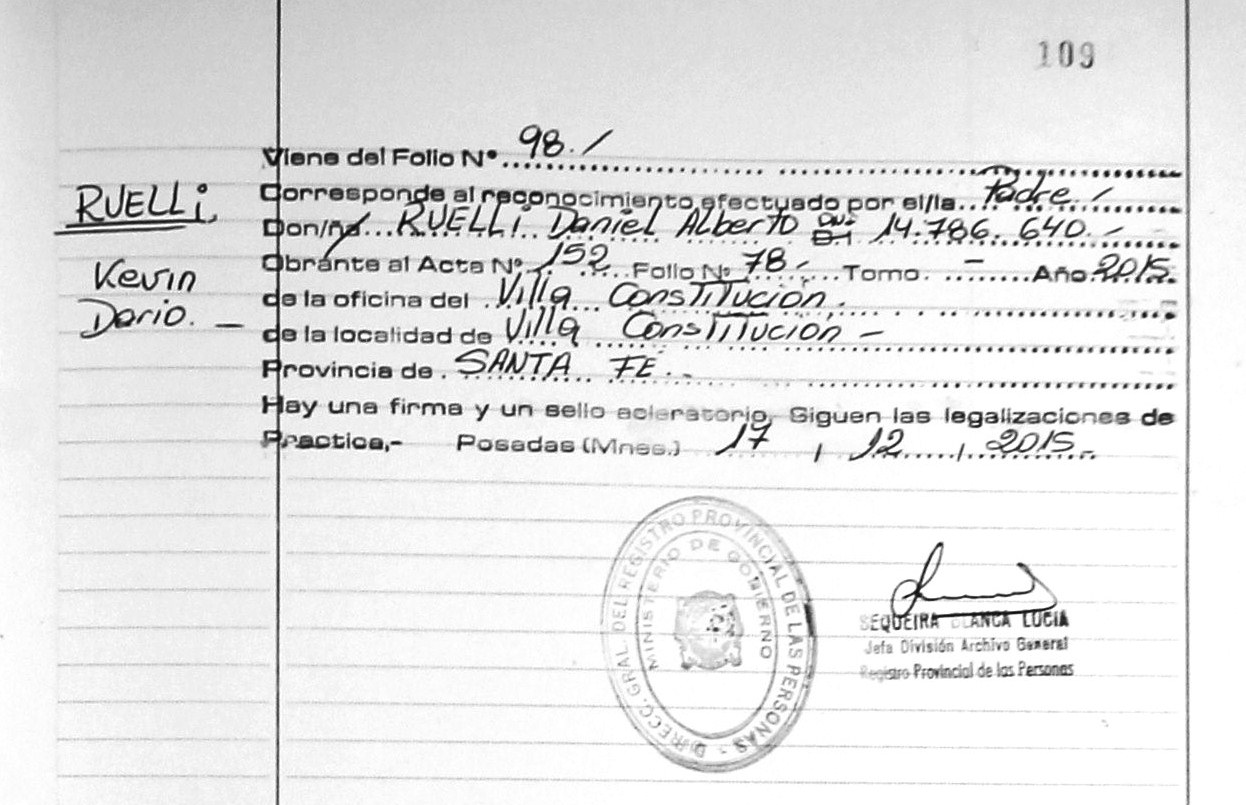 109
Viene del Folio Nº 98./
RUELLi,
Kevin
Dario. —
Corresponde al reconocimiento efectuado por el/la Padre /
Don/ña RUELLi Daniel Alberto 14.786.640.-
Obrante al Acta Nº 152 Folio Nº 78, Tomo. — Año 2015.
de la oficina del Villa Constitución.
de la localidad de Villa Constitución —
Provincia de SANTA FE.-
Hay una firma y un sello acleratorio, Siguen las legalizaciones de
Practica,- Posadas (Mnes.) 17 / 12 / 2015.
DIRECC. GRAL. DEL REGISTRO PROVINCIAL DE LAS PERSONAS -
MINISTERIO DE GOBIERNO
SEQUEIRA BLANCA LUCIA
Jefa División Archivo General
Registro Provincial de las Personas